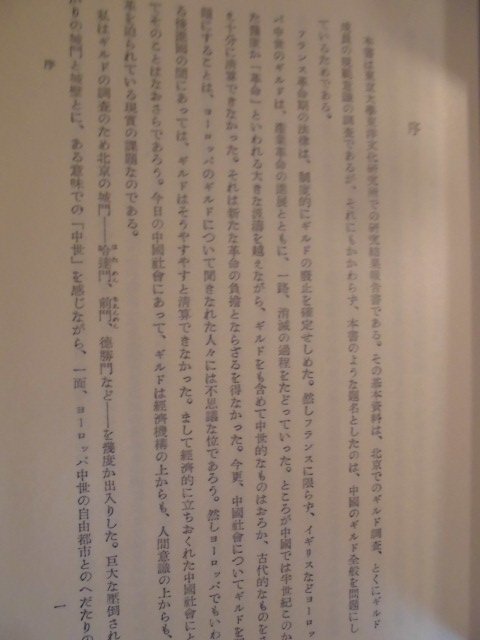 序
本書は東京大學東洋文化研究所での研究結果報告書である。その基本資料は、北京でのギルド調査、とくにギルド
成員の規範意識の調査であるが、それにもかかわらず、本書のような題名としたのは、中國のギルド全般を問題にし
ているためである。
フランス革命期の法律は、制度的にギルドの廢止を確定せしめた。然しフランスに限らず、イギリスなどヨーロッ
パ中世のギルドは、產業革命の進展とともに、一路、消滅の過程をたどっていった。ところが中國では半世紀このか
た幾度か「革命」といわれる大きな波濤を越えながら、ギルドをも含めて中世的なものはおろか、古代的なものを
十分に清算できなかった。それは新たな革命の負擔とならざるを得なかった。今更、中國社會についてギルドを
題にすることは、ヨーロッパのギルドについて聞きなれた人々には不思議な位であろう。然しヨーロッパでもいわ
る後進國の間にあっては、ギルドはそうやすやすと清算できなかった。まして經濟的に立ちおくれた中國社會にと
てそのことはなおさらであろう。今日の中國社會にあって、ギルドは經濟機構の上からも、人間意識の上からも、
革を迫られている現實の課題なのである。
私はギルドの調査のため北京の城門——哈達門、前門、德勝門など——を幾度か出入りした。巨大な壓倒され
りの城門と城壁とに、ある意味での「中世」を感じながら、一面、ヨーロッパ中世の自由都市とのへだたりの
序
一